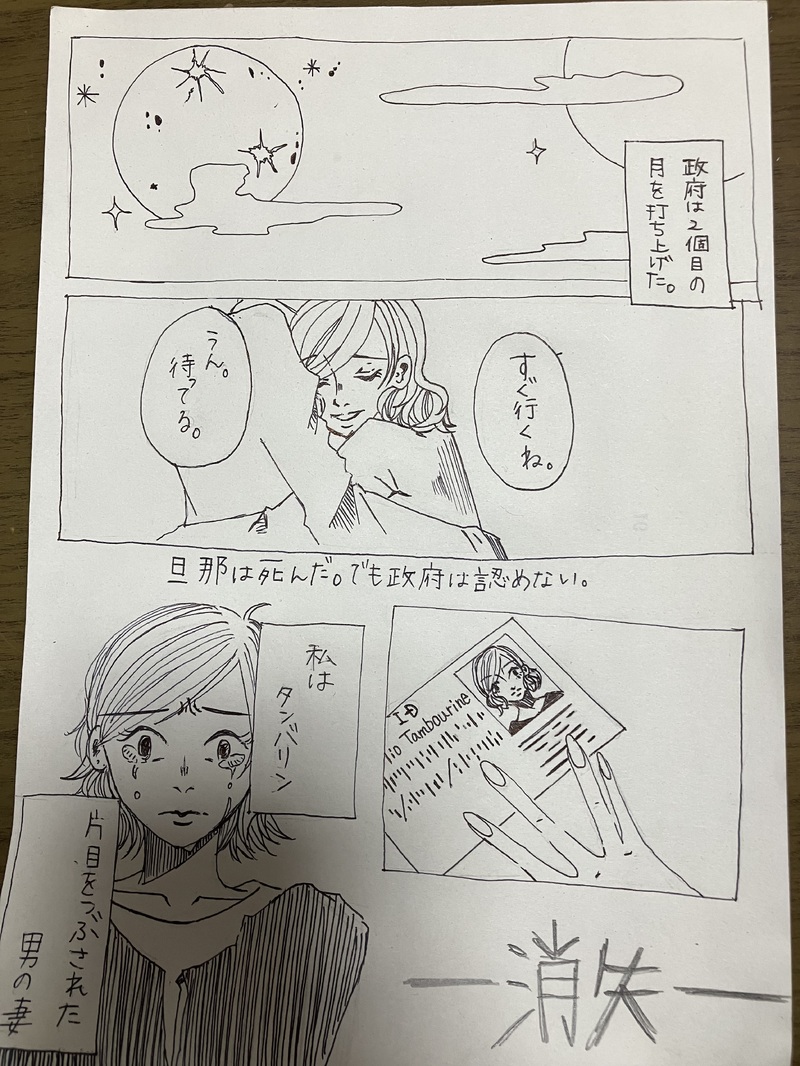 政府は2個目の
月を打ち上げた。
すぐ行くね。
うん。
待ってる。
旦那は死んだ。でも政府は認めない。
ID
lio Tambourine
私は
タンバリン
片目をつぶされた
男の妻
―消失―